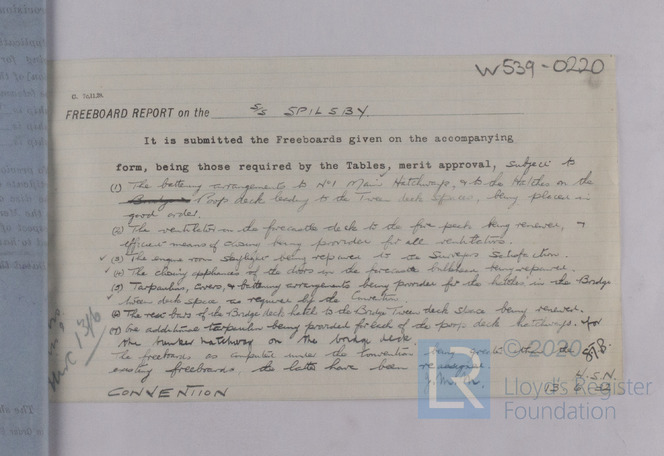 W539-0220
FREEBOARD REPORT on the S/S SPILSBY.
It is submitted the Freeboards given on the accompanying
form, being those required by the Tables, merit approval, subject to
(1) The battening arrangements to No 1 Main Hatchways, & to the Hatches on the
Bridge Poop deck leading to the Tween deck spaces, being placed in
good order.
(2) The ventilator on the forecastle deck to the fore peak being renewed, &
efficient means of closing being provided for all ventilators.
(3) The engine room skylight being repaired to the Surveyors Satisfaction.
(4) The closing appliances of the doors in the forecastle bulkhead being repaired.
(5) Tarpaulins, covers, & battening arrangements being provided for the hatches in the Bridge
tween deck space as required by the Convention
(6) The rest bars of the Bridge deck hatch to the Bridge Tween deck space being renewed.
(7) One additional tarpaulin being provided for each of the poop deck hatchways. & for
the bunker hatchway on the bridge deck.
The freeboards as computed under the Convention being greater than the
existing freeboards, the latter have been reassigned
CONVENTION
H.S.N.
13 6 32
13/6
© 2020
Lloyd's Register
Foundation
LR